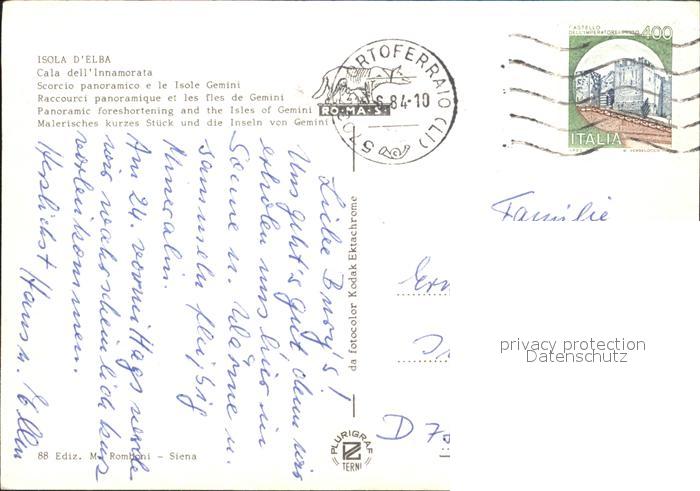 ISOLA D'ELBA
Cala dell'Innamorata
Scorcio panoramico e le Isole Gemini
Raccourci panoramique et les îles de Gemini
Panoramic foreshortening and the Isles of Gemini
Malerisches kurzes Stück und die Inseln von Gemini
PORTOFERRAIO (LI)
6.84-10
ROMA
CASTELLO
DELL'IMPERATORE PRATO 400
ITALIA
Uns geht's gut denn wir
erholen uns hier in
Sonne u. Wärme u.
sammeln fleißig
Mineralien.
Am 24. vormittags werde
wir wahrscheinlich kurz
vorbeikommen.
Herzlichst Hans u. Ellen
Familie
D
privacy protection
Datenschutz
da fotocolor Kodak Ektachrome
PLURIGRAF
TERNI
88 Ediz. M. Romboni - Siena